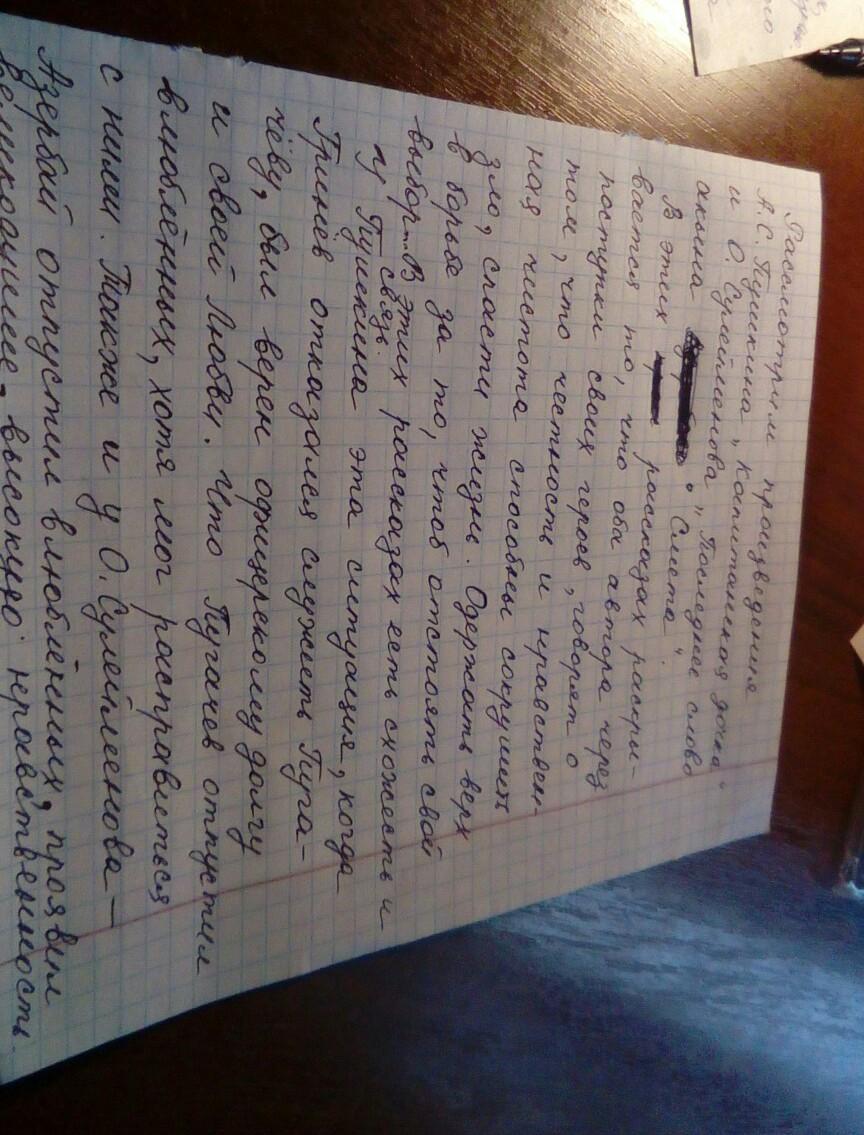 Рассмотрим произведения
А.С. Пушкина „Капитанская дочка“
и О. Сулейменова „Последнее слово
акына Смета“.
В этих рассказах раскры-
вается то, что оба автора через
поступки своих героев, говорят о
том, что честность и нравствен-
ная чистота способны сокрушит
зло, спасти жизнь. Одержать верх
в борьбе за то, чтоб отстоять свой
выбор. В этих рассказах есть схожесть и
связь.
У Пушкина эта ситуация, когда
Гринёв отказался служить Пуга-
чёву, был верен офицерскому долгу
и своей Любви. Что Пугачев отпустил
влюблённых, хотя мог расправиться
с ними. Также и у О. Сулейменова —
Азербай отпустил влюблённых, проявил
великодушие, высокую нравственность.